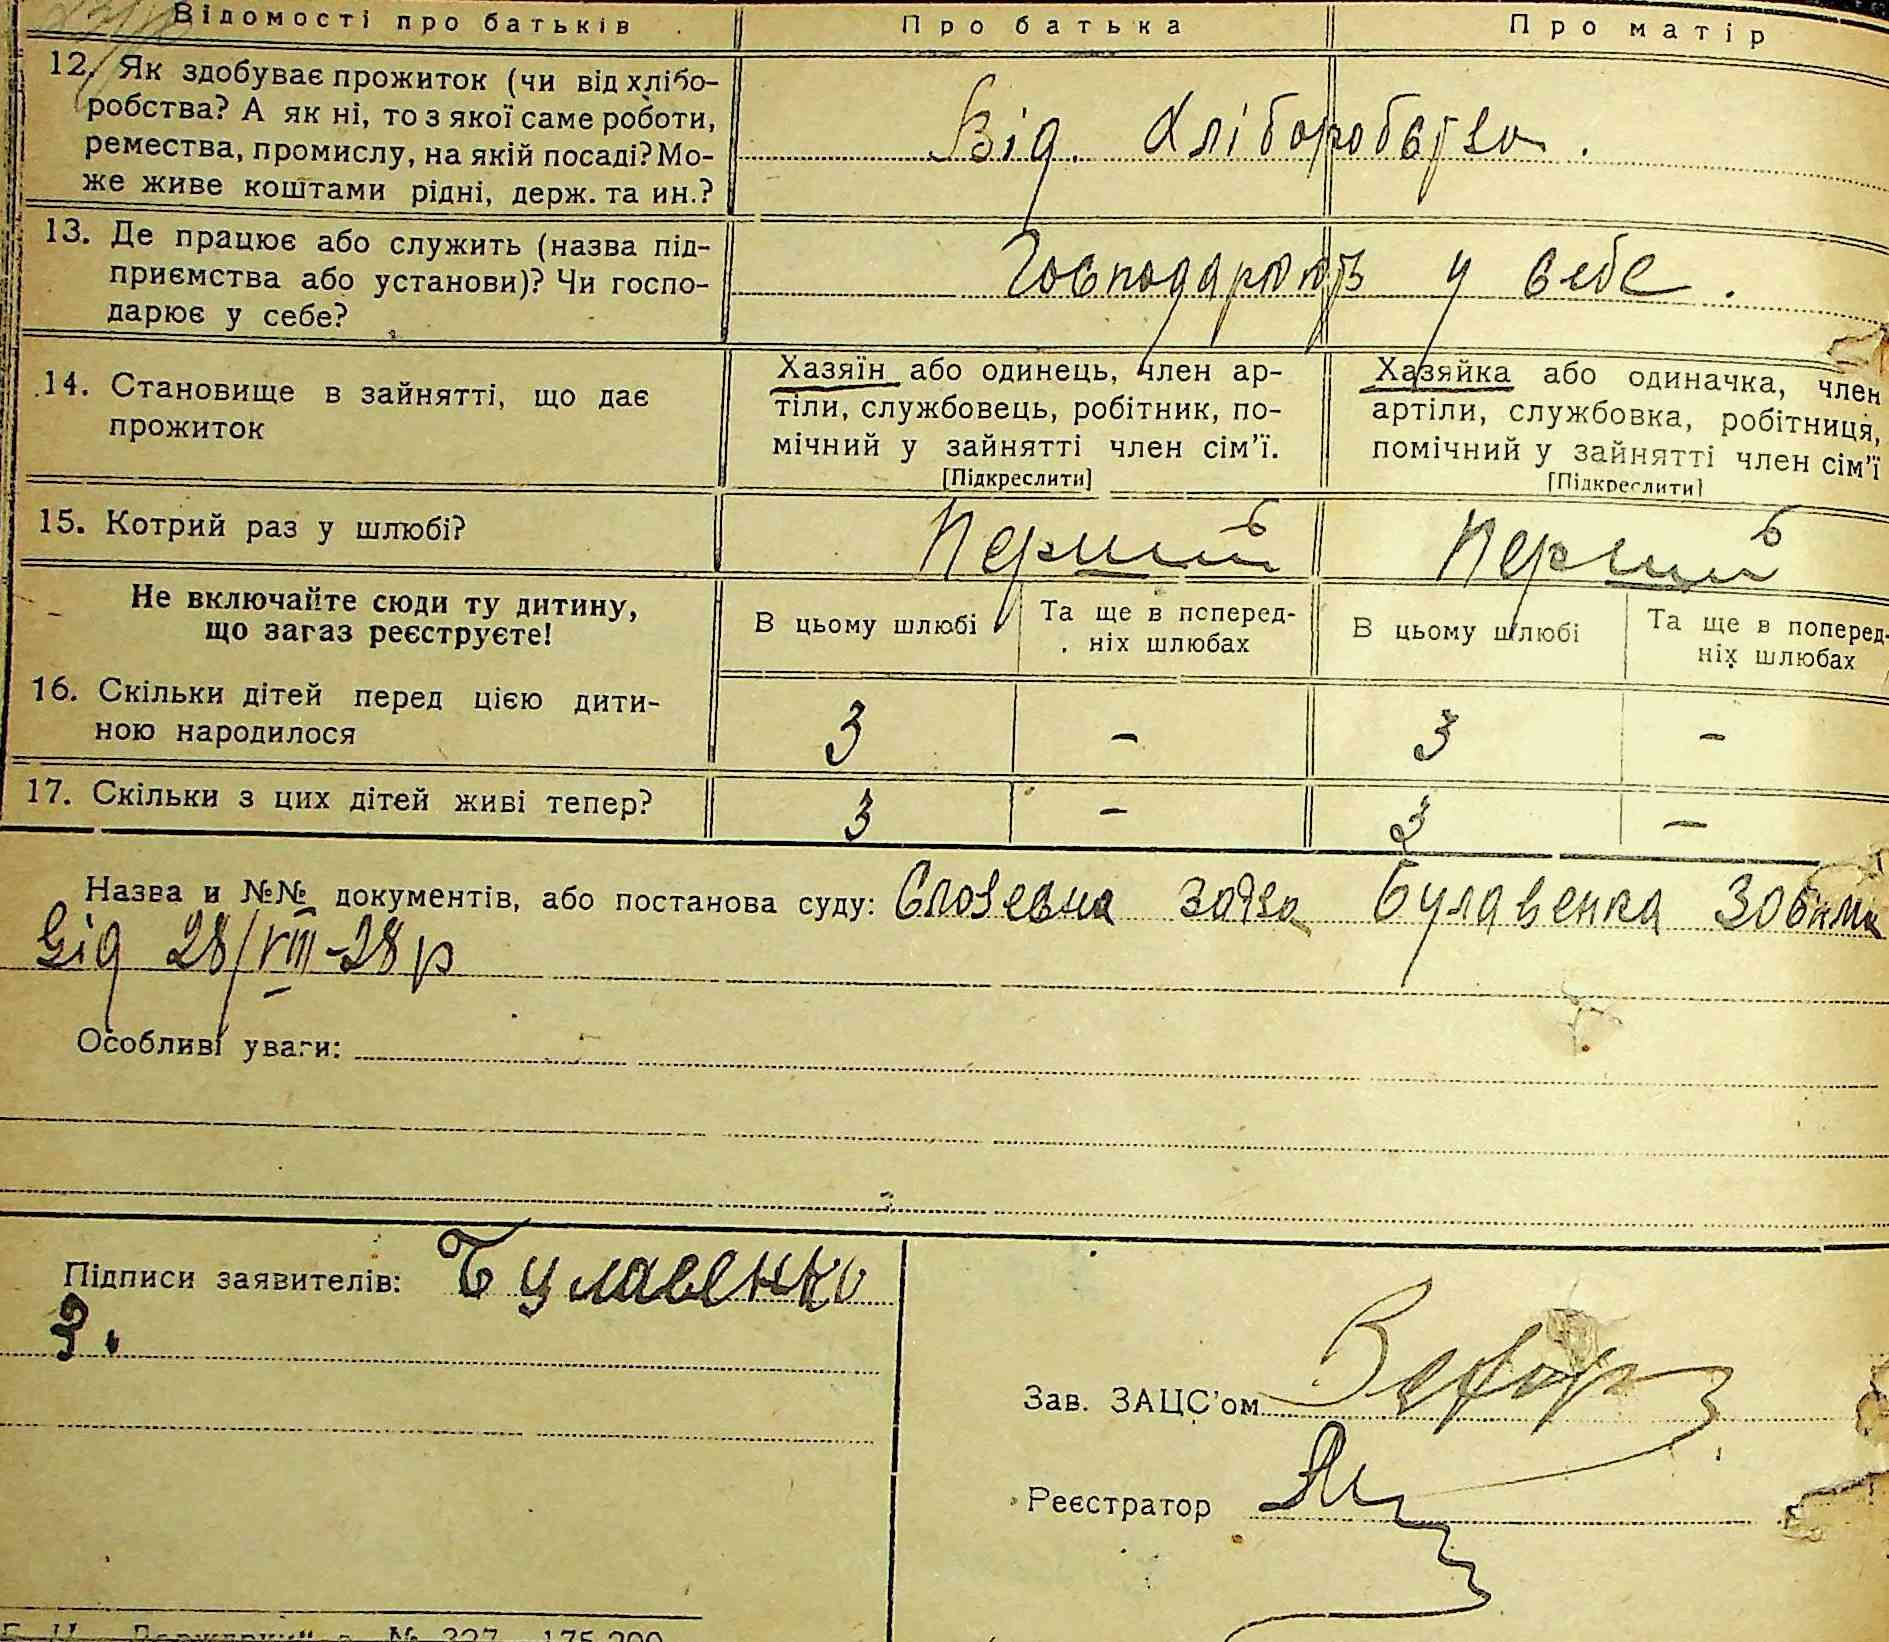 Відомості про батьків	Про батька	Про матір
12. Як здобуває прожиток (чи від хлібо-
робства? А як ні, то з якої саме роботи,
ремества, промислу, на якій посаді? Мо-
же живе коштами рідні, держ. та ин.?
Від хліборобства.
13. Де працює або служить (назва під-
приємства або установи)? Чи госпо-
дарює у себе?
Господарюють у себе.
14. Становище в зайнятті, що дає
прожиток
Хазяїн або одинець, член ар-
тіли, службовець, робітник, по-
мічний у зайнятті член сім'ї.
[Підкреслити]
Хазяйка або одиначка, член
артіли, службовка, робітниця,
помічний у зайнятті член сім'ї
[Підкреслити]
15. Котрий раз у шлюбі?	Перший	Перший
Не включайте сюди ту дитину,
що зараз реєструєте!
В цьому шлюбі
Та ще в поперед-
ніх шлюбах
В цьому шлюбі
Та ще в поперед-
ніх шлюбах
16. Скільки дітей перед цією дити-
ною народилося
3	-	3	-
17. Скільки з цих дітей живі тепер?	3	-	3	-
Назва и №№ документів, або постанова суду: Словевна заява Булавенка
від 28/VIII-28р
Особливі уваги:
Підписи заявителів: Булавенко
З.
Зав. ЗАЦС'ом
Реєстратор
№ 327 175.200